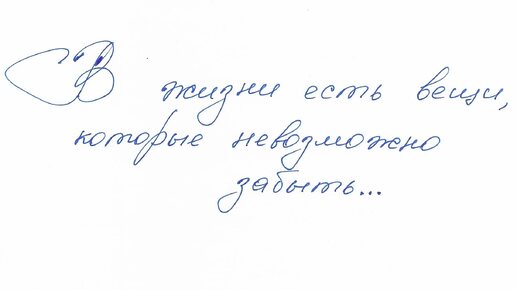 В жизни есть вещи,
которые невозможно
забыть...